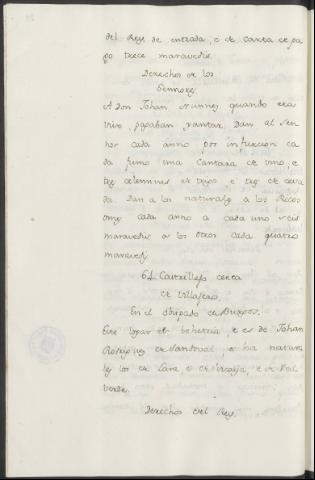 del Rey de entrada, e de carta de pa
go trece maravedis.
Derechos de los
Sennores.
A Don Johan Nunnez, quando era
vivo, pagaban yantar. Dan al Sen
nor cada anno por infurcion ca
da fumo una cantara de vino, e
tres celemines de trigo e tres de ceva
da. Dan a los naturales a los Ricos
omes cada anno a cada uno seis
maravedis a los otros cada quatro
maravedis
61. Castrillejo cerca
de Villajero.
En el obispado de Burgos.
Este logar es behetria, e es de Johan
Rodriguez de Sandoval, e ha natura
les los de Lara, e de Vizcaya, e de Val
verde.
Derechos del Rey.